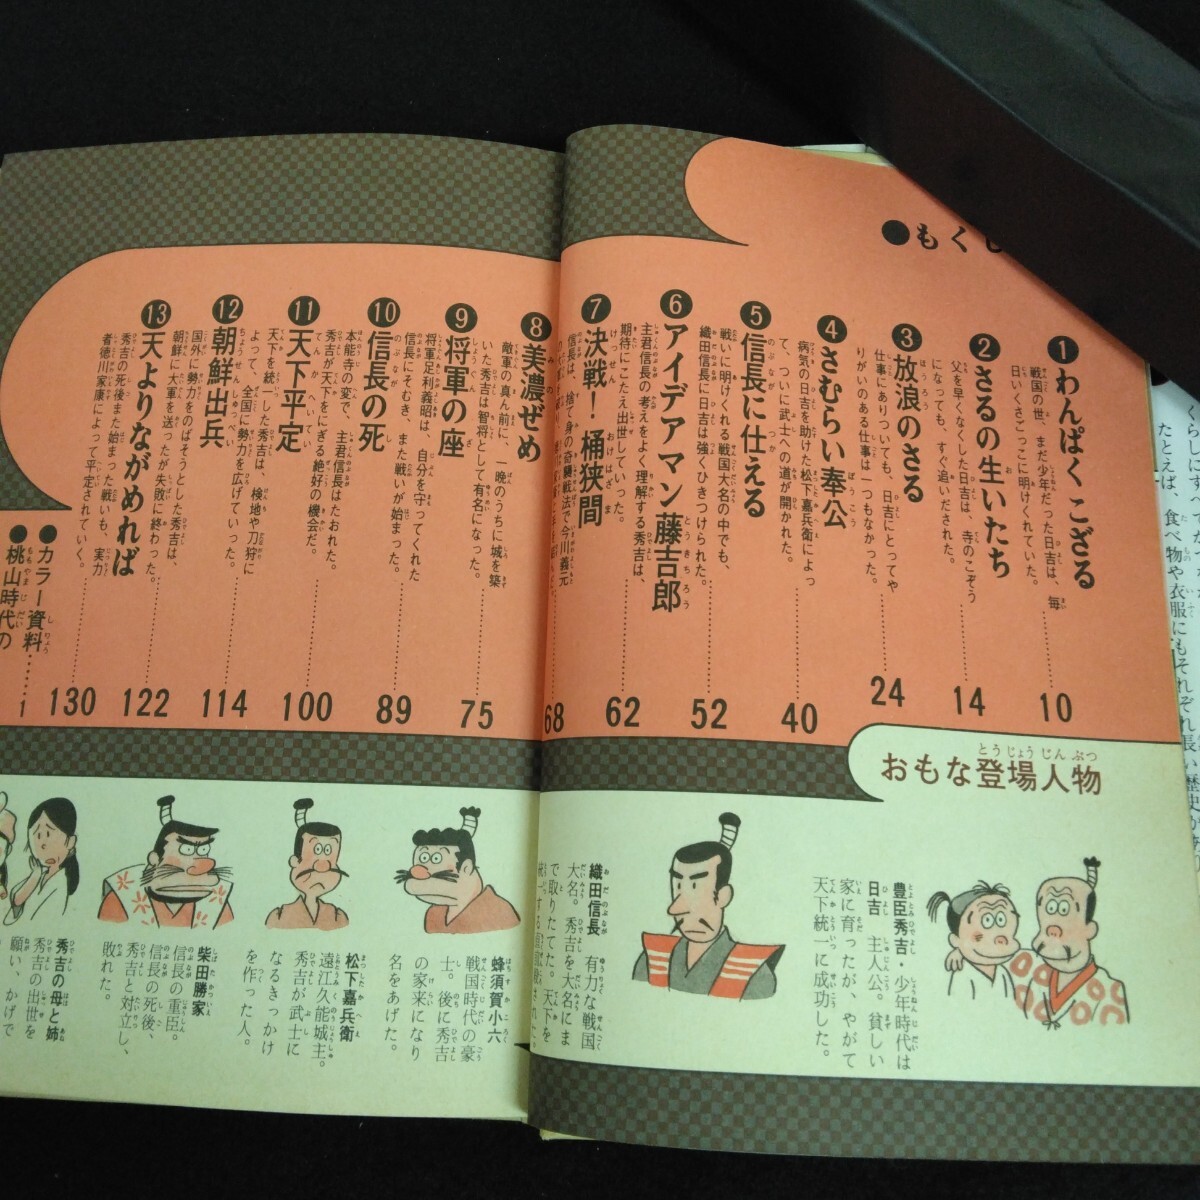 ●もくじ
❶わんぱくこざる
戦国の世、まだ少年だった日吉は、毎
日いくさごっこに明けくれていた。
10
❷さるの生いたち
父を早くなくした日吉は、寺のこぞう
になっても、すぐ追いだされた。
14
❸放浪のさる
仕事にありついても、日吉にとってや
りがいのある仕事は一つもなかった。
24
❹さむらい奉公
病気の日吉を助けた松下嘉兵衛によっ
て、ついに武士への道が開かれた。
40
❺信長に仕える
戦いに明けくれる戦国大名の中でも、
織田信長に日吉は強くひきつけられた。
52
❻アイデアマン藤吉郎
主君信長の考えをよく理解する秀吉は、
期待にこたえ出世していった。
62
❼決戦！桶狭間
信長は、捨て身の奇襲戦法で今川義元
68
❽美濃ぜめ
敵軍の真ん前に、一晩のうちに城を築
いた秀吉は智将として有名になった。
75
❾将軍の座
将軍足利義昭は、自分を守ってくれた
信長にそむき、また戦いが始まった。
89
❿信長の死
本能寺の変で、主君信長はたおれた。
秀吉が天下をにぎる絶好の機会だ。
100
⓫天下平定
天下を統一した秀吉は、検地や刀狩に
よって、全国に勢力を広げていった。
114
⓬朝鮮出兵
国外に勢力をのばそうとした秀吉は、
朝鮮に大軍を送ったが失敗に終わった。
122
⓭天よりながめれば
秀吉の死後また始まった戦いも、実力
者徳川家康によって平定されていく。
130
●カラー資料
1
●桃山時代の
おもな登場人物
豊臣秀吉・少年時代は
日吉　主人公。貧しい
家に育ったが、やがて
天下統一に成功した。
織田信長　有力な戦国
大名。秀吉を大名にま
で取りたてた。天下を
蜂須賀小六
戦国時代の豪
士。後に秀吉
の家来になり
名をあげた。
松下嘉兵衛
遠江久能城主。
秀吉が武士に
なるきっかけ
を作った人。
柴田勝家
信長の重臣。
信長の死後、
秀吉と対立し、
敗れた。
秀吉の母と姉
秀吉の出世を
願い、かげで
たとえば、食べ物や衣服にもそれぞれ長い歴史が